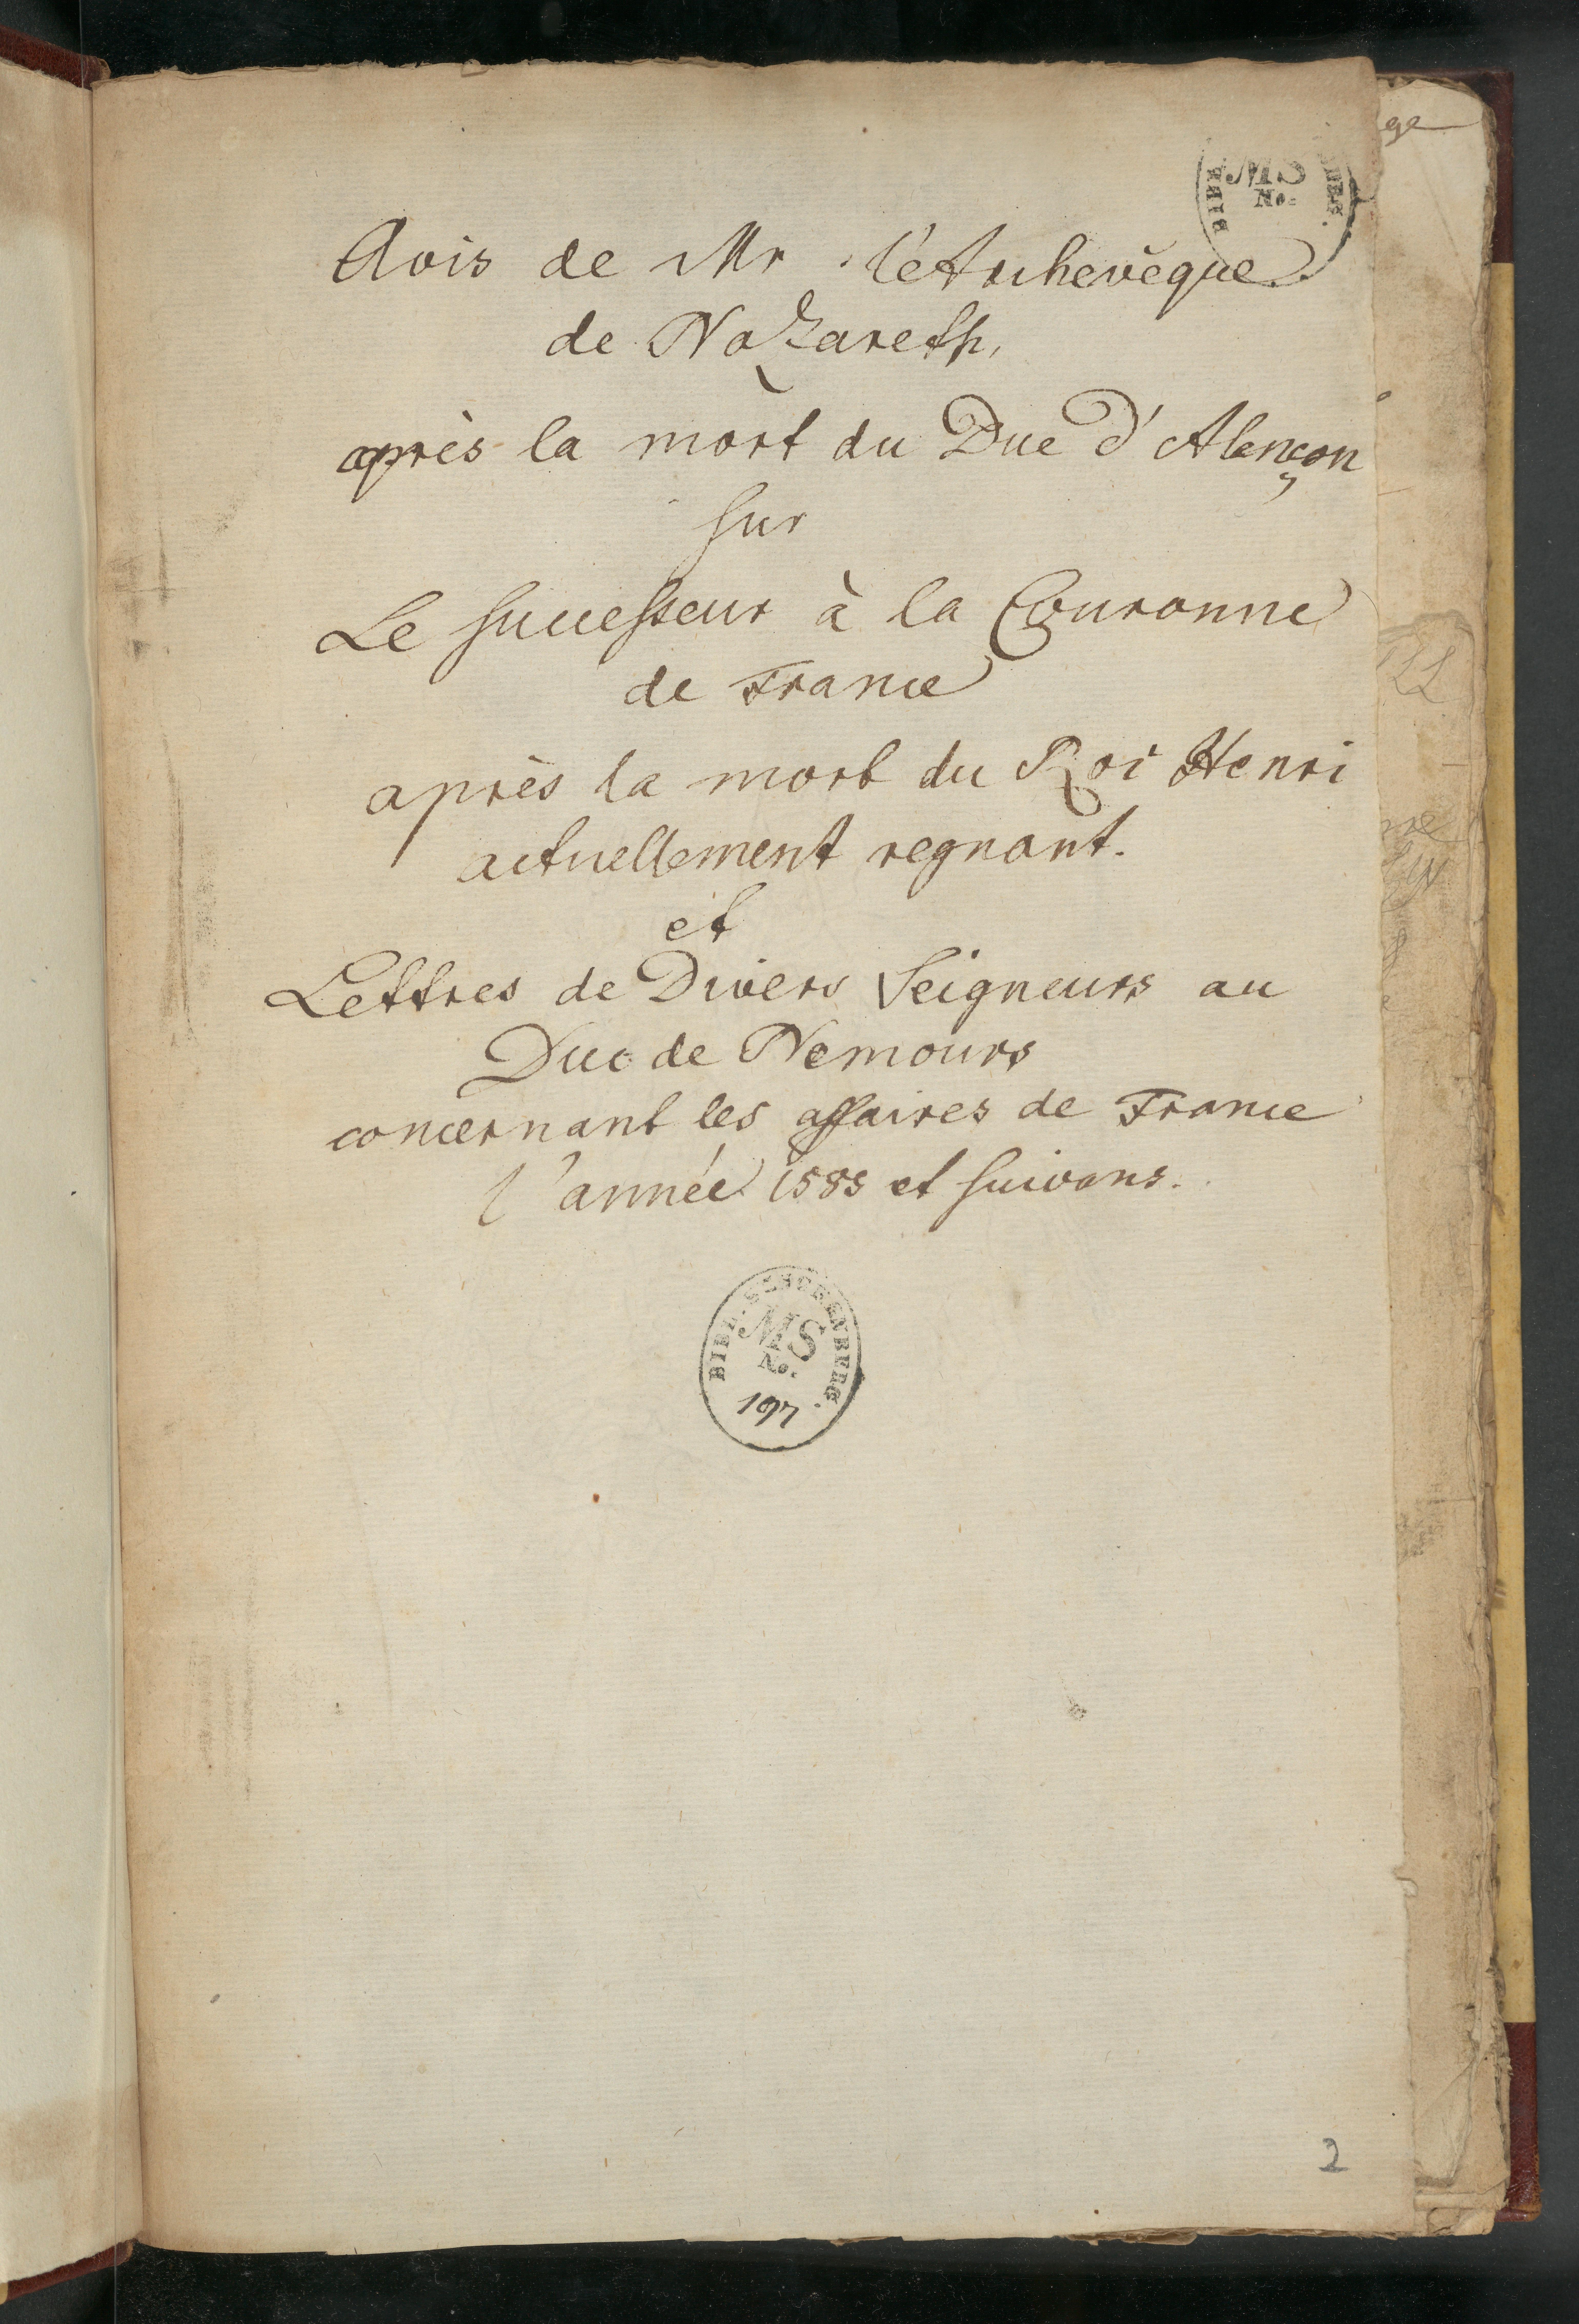 MS
No.
Avis de Mr l'Archevêque
de Nazareth,
après la mort du Duc d'Alençon
sur
Le successeur à la Couronne
de France
après la mort du Roi Henri
actuellement regnant.
et
Lettres de Divers Seigneurs au
Duc de Nemours
concernant les affaires de France
l'année 1585 et suivans.
BIBL. ESSCHENBURG.
MS
No.
197
2